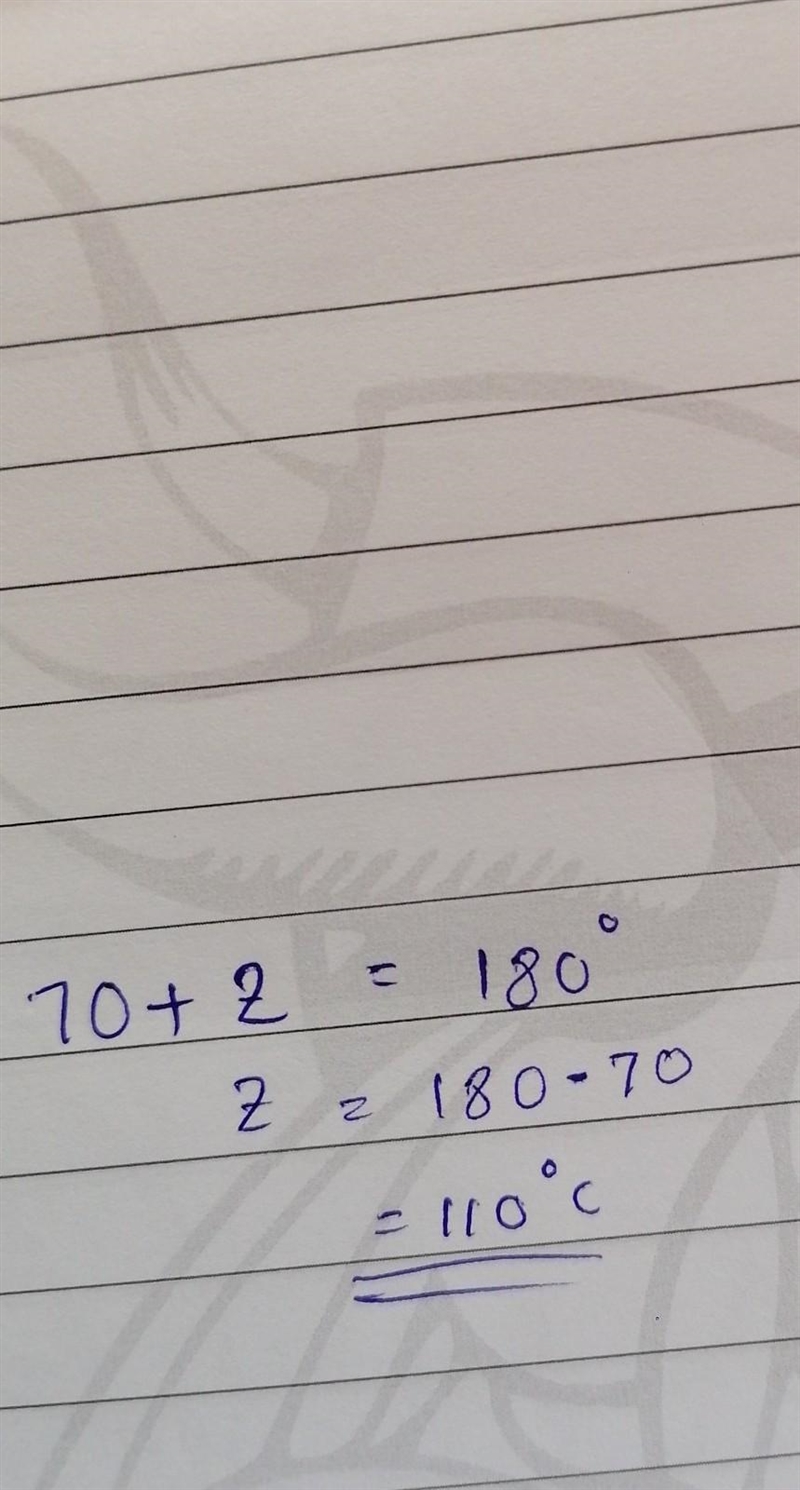 70 + Z = 180°
Z = 180 - 70
= 110°C